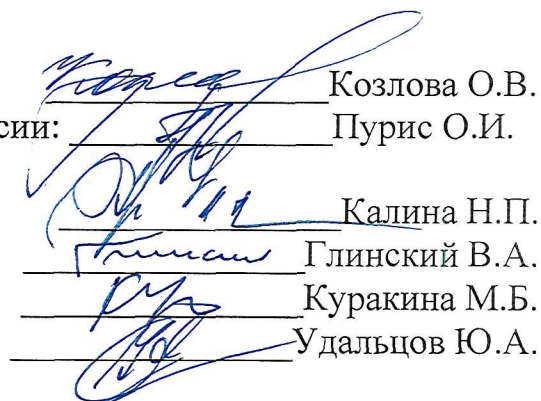 Козлова О.В.
сии: Пурис О.И.
Калина Н.П.
Глинский В.А.
Куракина М.Б.
Удальцов Ю.А.